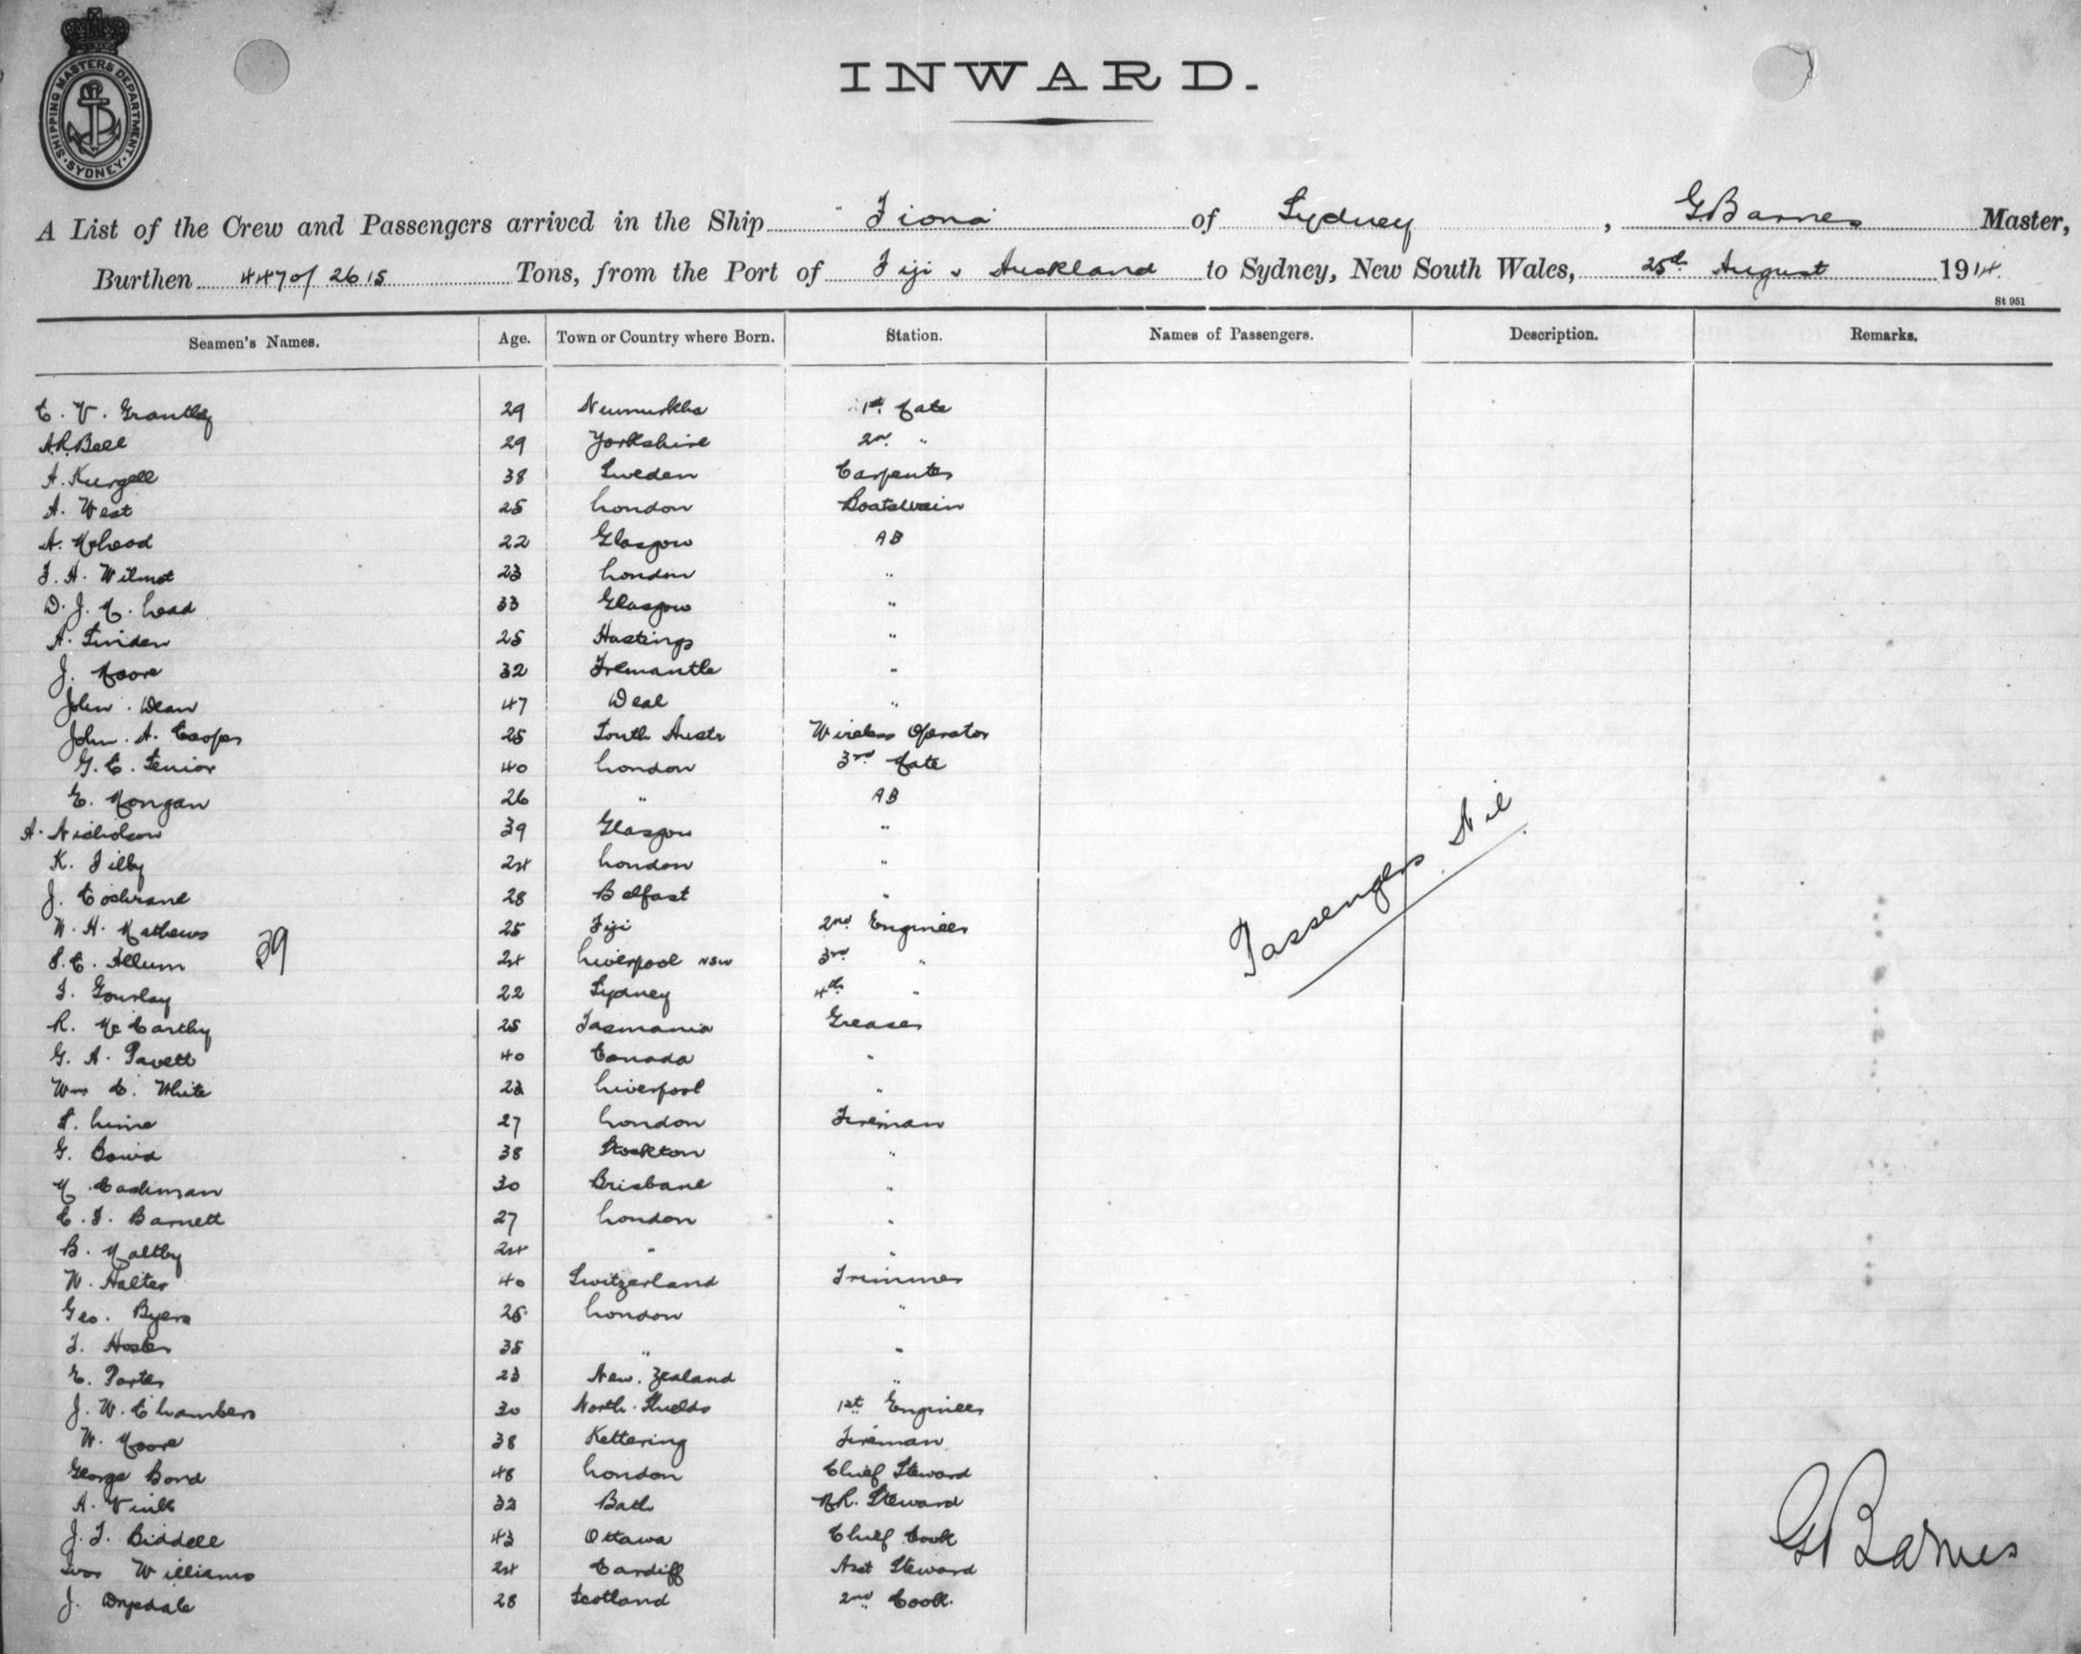 SHIPPING MASTERS DEPARTMENT. SYDNEY.
INWARD.
A List of the Crew and Passengers arrived in the Ship "Fiona" of Sydney, G Barnes Master,
Burthen 447 of 2615 Tons, from the Port of Fiji & Auckland to Sydney, New South Wales, 25th August 1914.
St 951
Seamen's Names. Age. Town or Country where Born. Station. Names of Passengers. Description. Remarks.
C. V. Grantley 29 1st Mate
A.R. Bell 29 Yorkshire 2nd "
A. Kurgell 38 Sweden Carpenter
A. West 25 London Boatswain
A. McLeod 22 Glasgow AB
F. H. Wilmot 23 London "
D. J. M. Lead 33 Glasgow "
A. Linden 25 Hastings "
J. Moore 32 Fremantle "
John Dean 47 Deal "
John A. Cooper 25 South Austr Wireless Operator
G. C. Senior 40 London 3rd Mate
E. Mongan 26 " AB
A. Nicholson 39 Glasgow "
K. Filby 24 London "
J. Cochrane 28 Belfast "
W. H. Mathews 25 Fiji 2nd Engineer
39
S. C. Allum 24 Liverpool NSW 3rd "
F. Gourlay 22 Sydney 4th "
R. McCarthy 25 Tasmania Greaser
G. A. Pavett 40 Canada "
Wm C. White 23 Liverpool "
S. Lime 27 London Fireman
G. Bowd 38 Stockton "
M. Cashman 30 Brisbane "
C. F. Barnett 27 London "
B. Maltby 24 " "
W. Halter 40 Switzerland Trimmer
Geo. Byers 26 London "
F. Hosler 35 " "
E. Porter 23 New Zealand "
J. W. Chambers 30 North Shields 1st Engineer
W. Moore 38 Kettering Fireman
George Bond 48 London Chief Steward
A. 32 Bath M.R. Steward
J. F. Biddell 43 Ottawa Chief Cook
Ivor Williams 24 Cardiff Asst Steward
J. Drysdale 28 Scotland 2nd Cook
Passengers Nil
G Barnes